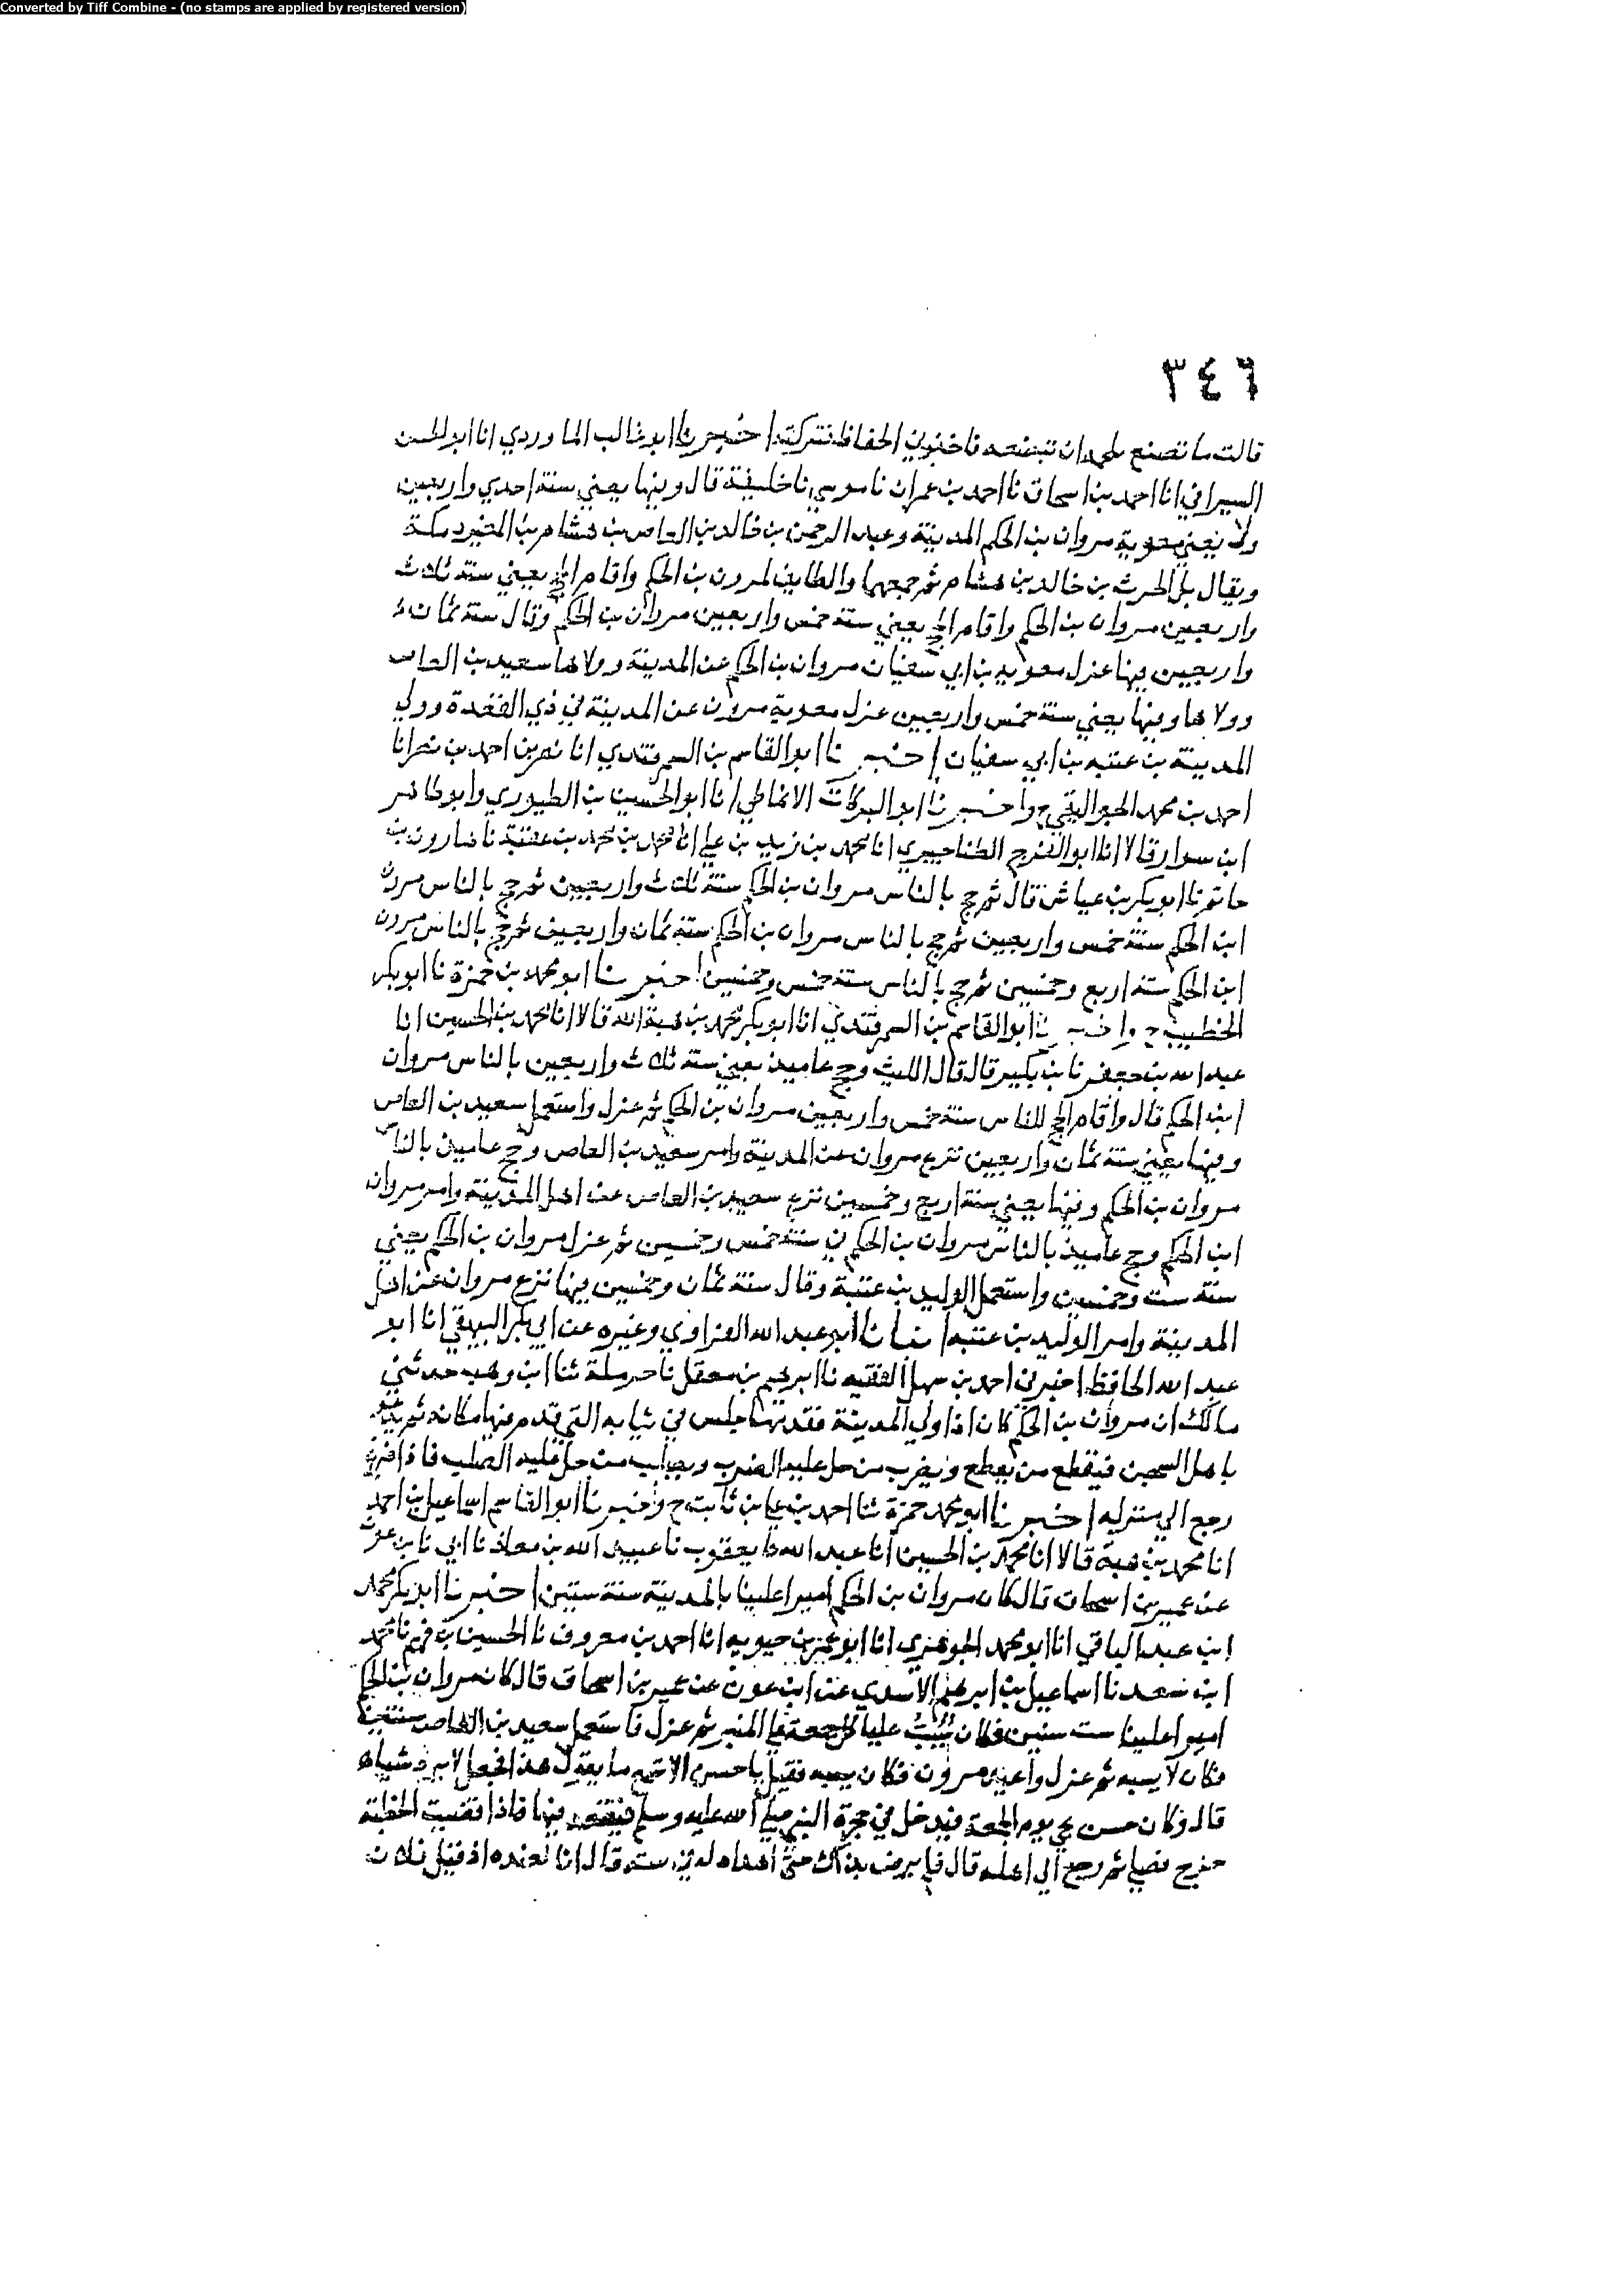 Converted by Tiff Combine - (no stamps are applied by registered version)
٣٤٦
قالت ما تصنع الحفاظ فتركته اخبرنا ابو غالب الما وردي انا ابو الحسن
السيرافي انا احمد بن اسحاق نا احمد بن عمران نا موسي نا خليفة قال وفيها يعني سنة احدي واربعين
ولا يعني معوية مروان بن الحكم المدينة وعبد الرحمن بن خالد بن العاص بن هشام بن المغيرة مكة
ويقال بل الحرث بن خالد بن هشام ثم جمعها والطايف لمرون بن الحكم واقام الحج يعني سنة ثلاث
واربعين مروان بن الحكم واقام الحج يعني سنة خمس واربعين مروان بن الحكم وقال سنة ثمان
واربعين فيها عزل معويه بن ابي سفيان مروان بن الحكم عن المدينة وولاها سعيد بن العاص
وولاها وفيها يعني سنة خمس واربعين عزل معوية مرون عن المدينة في ذي القعدة وولي
المدينة بن عتبه بن ابي سفيان اخبرنا ابو القاسم بن السمرقندي انا نصر بن احمد بن نصر انا
احمد بن محمد الجواليقي ح واخبرنا ابو البركات الانماطي انا ابو الحسين بن الطيوري وابو طاهر
ابن سوار قالا انا ابو الفرج الطناجيري انا محمد بن زيد بن علي انا محمد بن محمد بن عقبة نا هارون بن
حاتم نا ابو بكر بن عياش قال ثم حج بالناس مروان بن الحكم سنة ثلاث واربعين ثم حج بالناس مرون
ابن الحكم سنة خمس واربعين ثم حج بالناس مروان بن الحكم سنة ثمان واربعين ثم حج بالناس مرون
ابن الحكم سنة اربع وخمسين ثم حج بالناس سنة خمس وخمسين اخبرنا ابو محمد بن حمزة نا ابو بكر
الخطيب ح واخبرنا ابو القاسم بن السمرقندي انا ابو بكر محمد بن هبة الله قالا انا محمد بن الحسين انا
عبد الله بن جعفر نا بن بكير قال قال الليث وحج عاميذ يعني سنة ثلاث واربعين بالناس مروان
ابن الحكم قال واقام الحج للناس سنة خمس واربعين مروان بن الحكم ثم عزل واستعمل سعيد بن العاص
وفيها يعني سنة ثمان واربعين نزع مروان عن المدينة وامر سعيد بن العاص وحج عاميذ بالناس
مروان بن الحكم وفيها يعني سنة اربع وخمسين نزع سعيد بن العاص عن اهل المدينة وامر مروان
ابن الحكم وحج عاميذ بالناس مروان بن الحكم سنة خمس وخمسين ثم عزل مروان بن الحكم يعني
سنة ست وخمسين واستعمل الوليد بن عتبة وقال سنة ثمان وخمسين فيها نزع مروان عن اهل
المدينة وامر الوليد بن عتبه انبانا ابو عبد الله الفراوي وغيره عن ابي بكر البيهقي انا ابو
عبد الله الحافظ اخبرني احمد بن سهل الفقيه نا ابرهيم بن معقل نا حرملة ثنا ابن وهب حدثني
مالك ان مروان بن الحكم كان اذا ولي المدينة فقدمها جلس في ثيابه التي قدم فيها مكانه ثم
باهل السجن فيقطع من يقطع ويضرب من حل عليه الضرب ويصلب من حل عليه الصلب فاذا
رجع الي منزله اخبرنا ابو محمد حمزة ثنا احمد بن علي بن ثابت ح واخبرنا ابو القاسم اسماعيل بن احمد
انا محمد بن هبة قالا انا محمد بن الحسين انا عبد الله نا يعقوب نا عبيد الله بن معاذ نا ابي نا بن عون
عن عمير بن اسحاق قال كان مروان بن الحكم اميرا علينا بالمدينة سنة ستين اخبرنا ابو بكر محمد
ابن عبد الباقي انا ابو محمد الجوهري انا ابو عمر بن حيويه انا احمد بن معروف نا الحسين بن فهم نا محمد
ابن سعد نا اسماعيل بن ابرهيم الاسدي عن ابن عون عن عمير بن اسحاق قال كان مروان بن الحكم
اميرا علينا ست سنين فكان يسب عليا كل جمعة علي المنبر ثم عزل فاستعمل سعيد بن العاص سنتين
فكان لا يسبه ثم عزل واعيد مرون فكان يسبه فقيل يا حسن الا تسمع ما يقول هذا فجعل لا يرد شياه
قال وكان حسن يجي يوم الجمعة فيدخل في حجرة النبي صلى الله عليه وسلم فيقعد فيها فاذا قضيت الخطبة
خرج فصلي ثم رجع الي اهله قال فلم يرض بذلك حتي اهداه له في بيته قال انا لعنده اذ قيل فلان